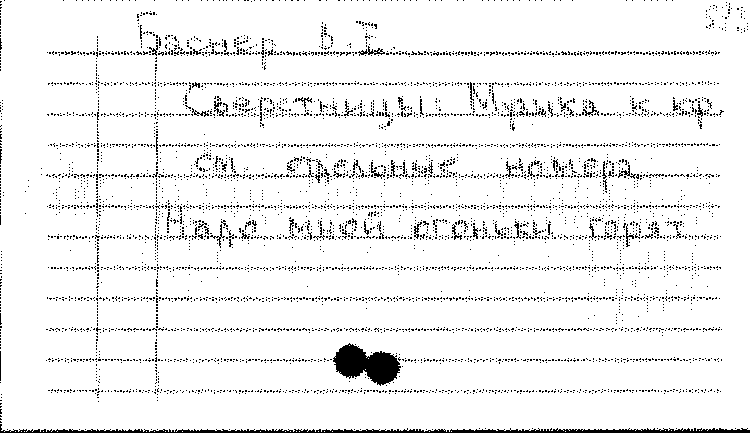 Баснер В.Е.
Сверстницы: Музыка к кр.
см. отдельные номера
Надо мной огоньки горят